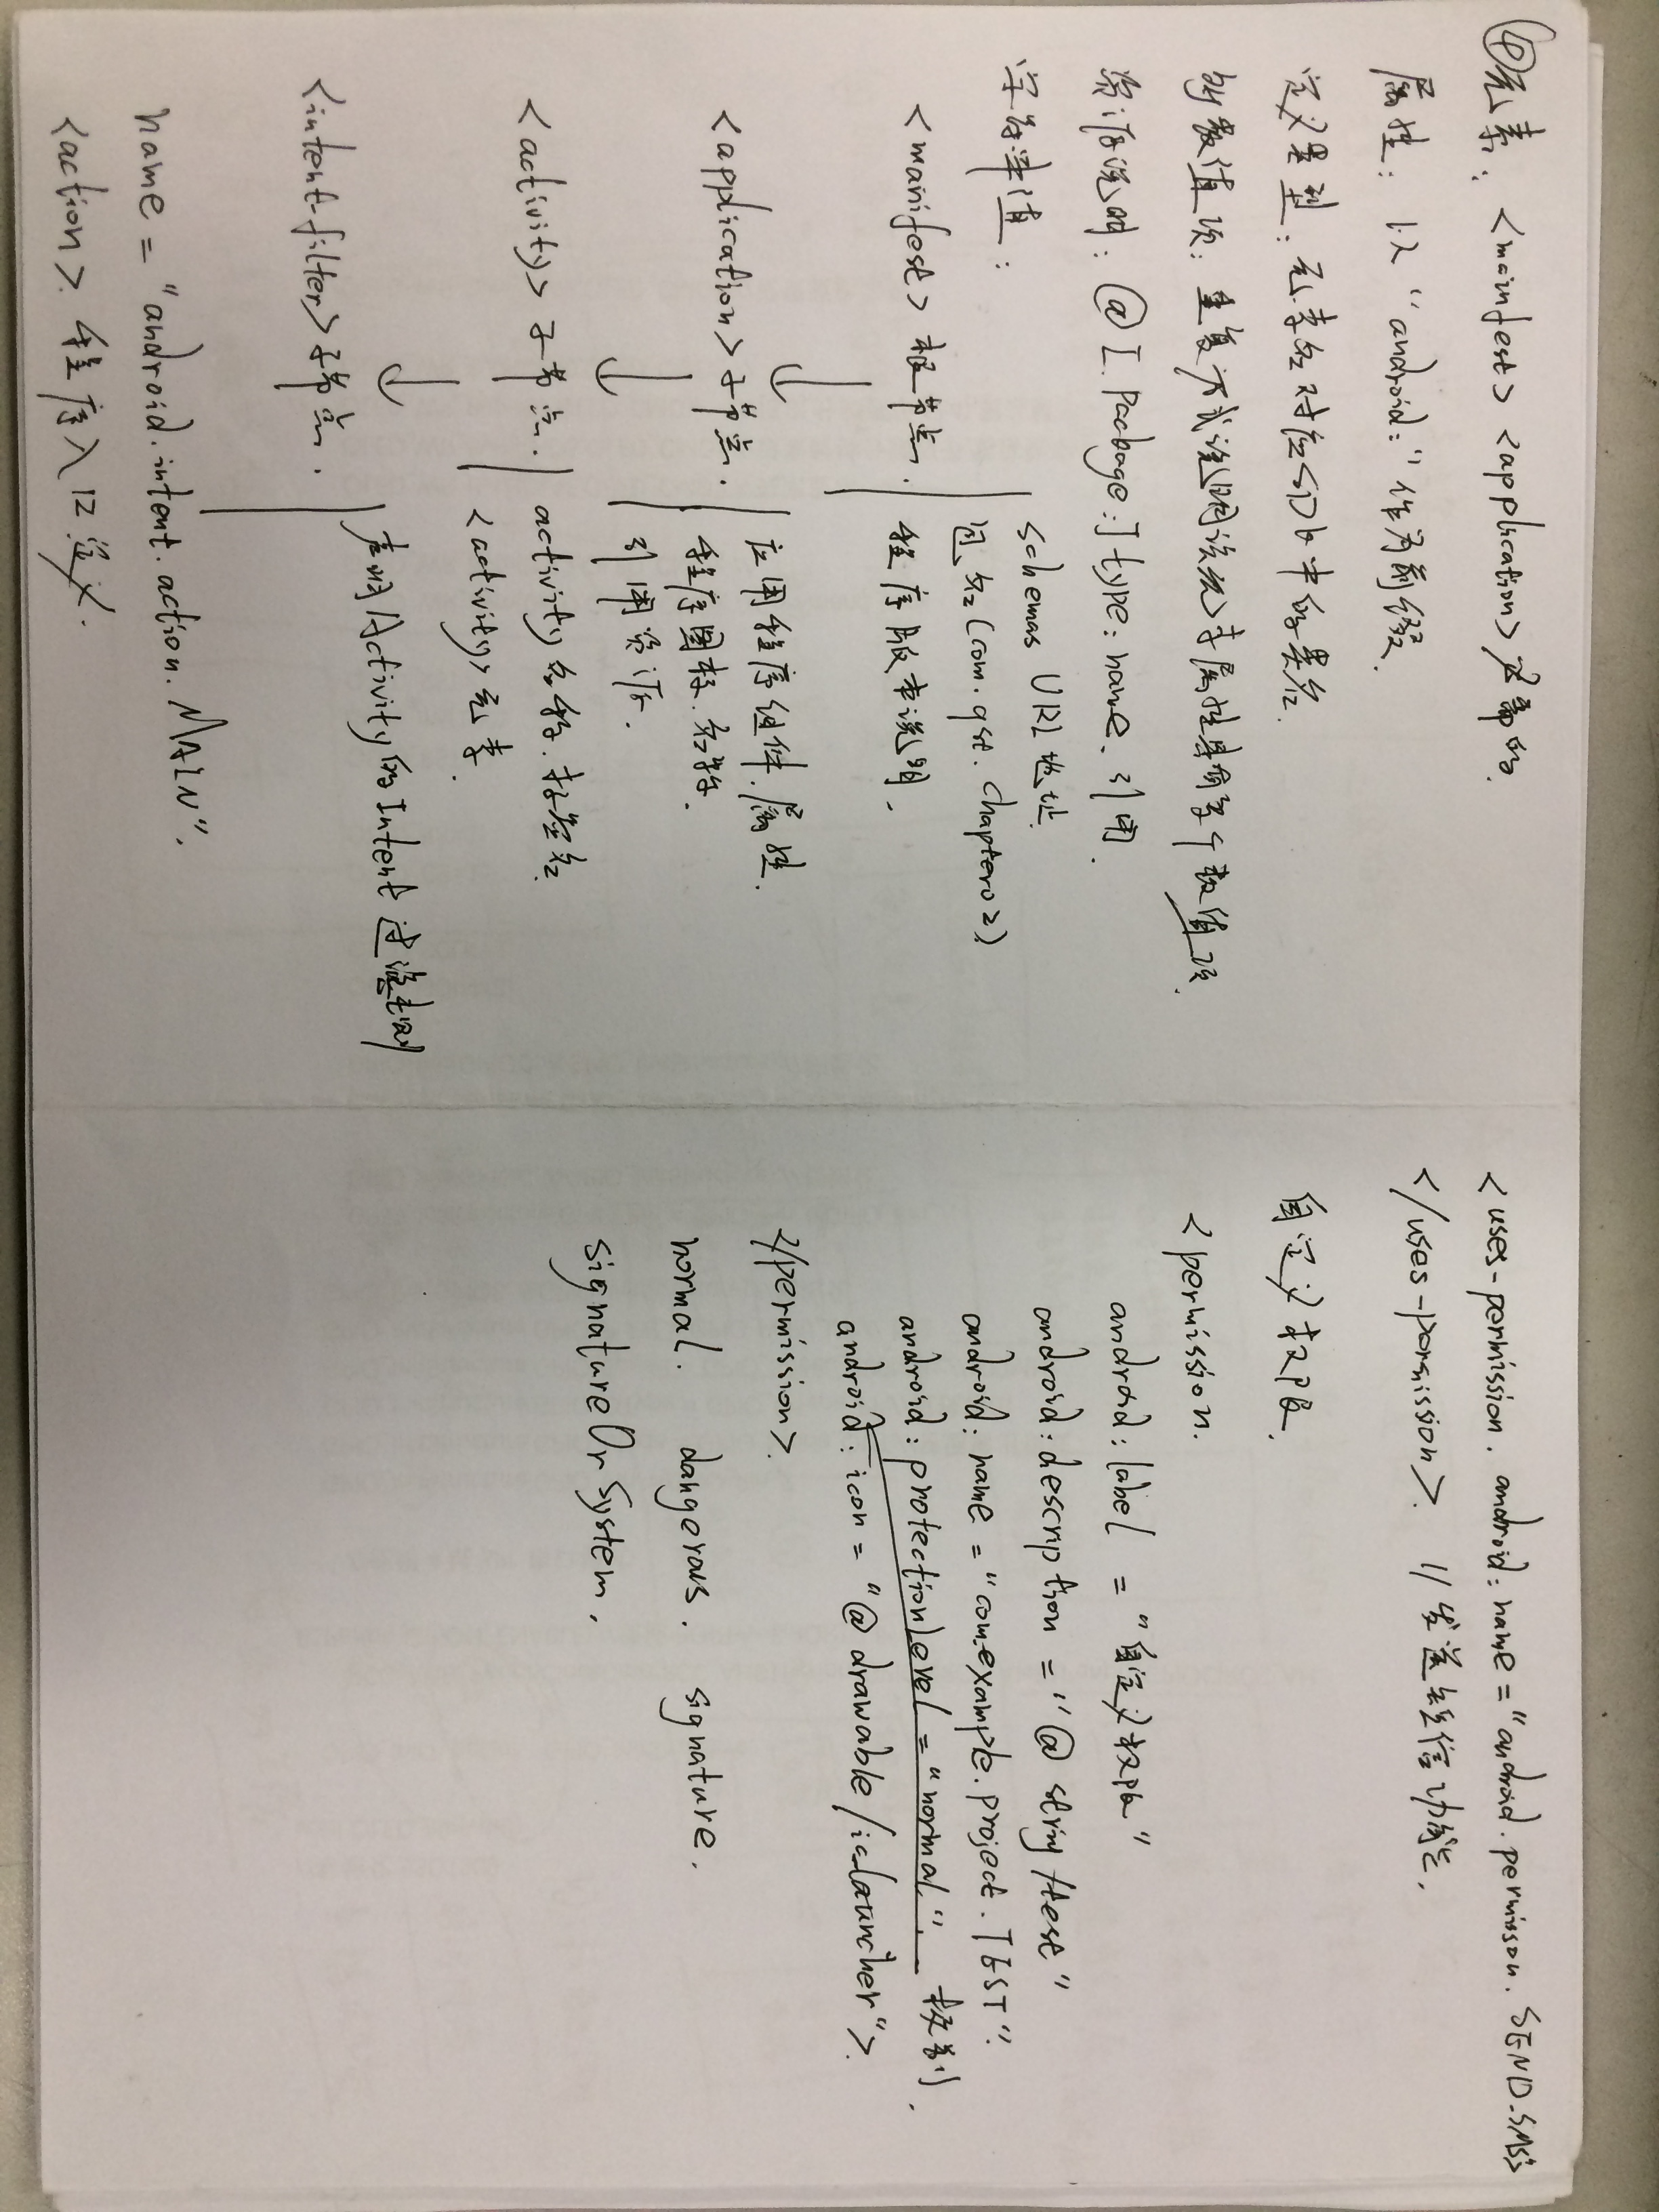 ④元素: <mainfest> <application> 必需的.
属性: 以 "android:" 作为前缀.
定义类型: 元素名对应SDk中的类名.
多数值项: 重复方式说明该元素属性具有多个数值项.
资源说明: @[.Package:] type: name. 引用.
字符串值:
schemas URL 地址.
包名 (com.qst.chapter02).
<manifest> 根节点.
程序版本说明.
应用程序组件.属性.
<application> 子节点.
程序图标.名称.
引用资源.
<activity> 子节点.
activity 名称. 标签名.
<activity> 元素.
声明Activity的Intent 过滤规则
<intent-filter> 子节点.
name = "android.intent.action.MAIN".
<action>. 程序入口定义.
<uses-permission. android:name = "android.permisson.SEND_SMS">
</uses-permission>. // 发送短信功能.
自定义权限.
<permission.
android:label = "自定义权限"
android:description = "@ string/test"
android:name = "com.example.project.TEST".
android:protectionLevel = "normal". 级别.
android:icon = "@ drawable/ic_launcher">.
</permission>.
normal. dangerous. signature.
signatureOrSystem.